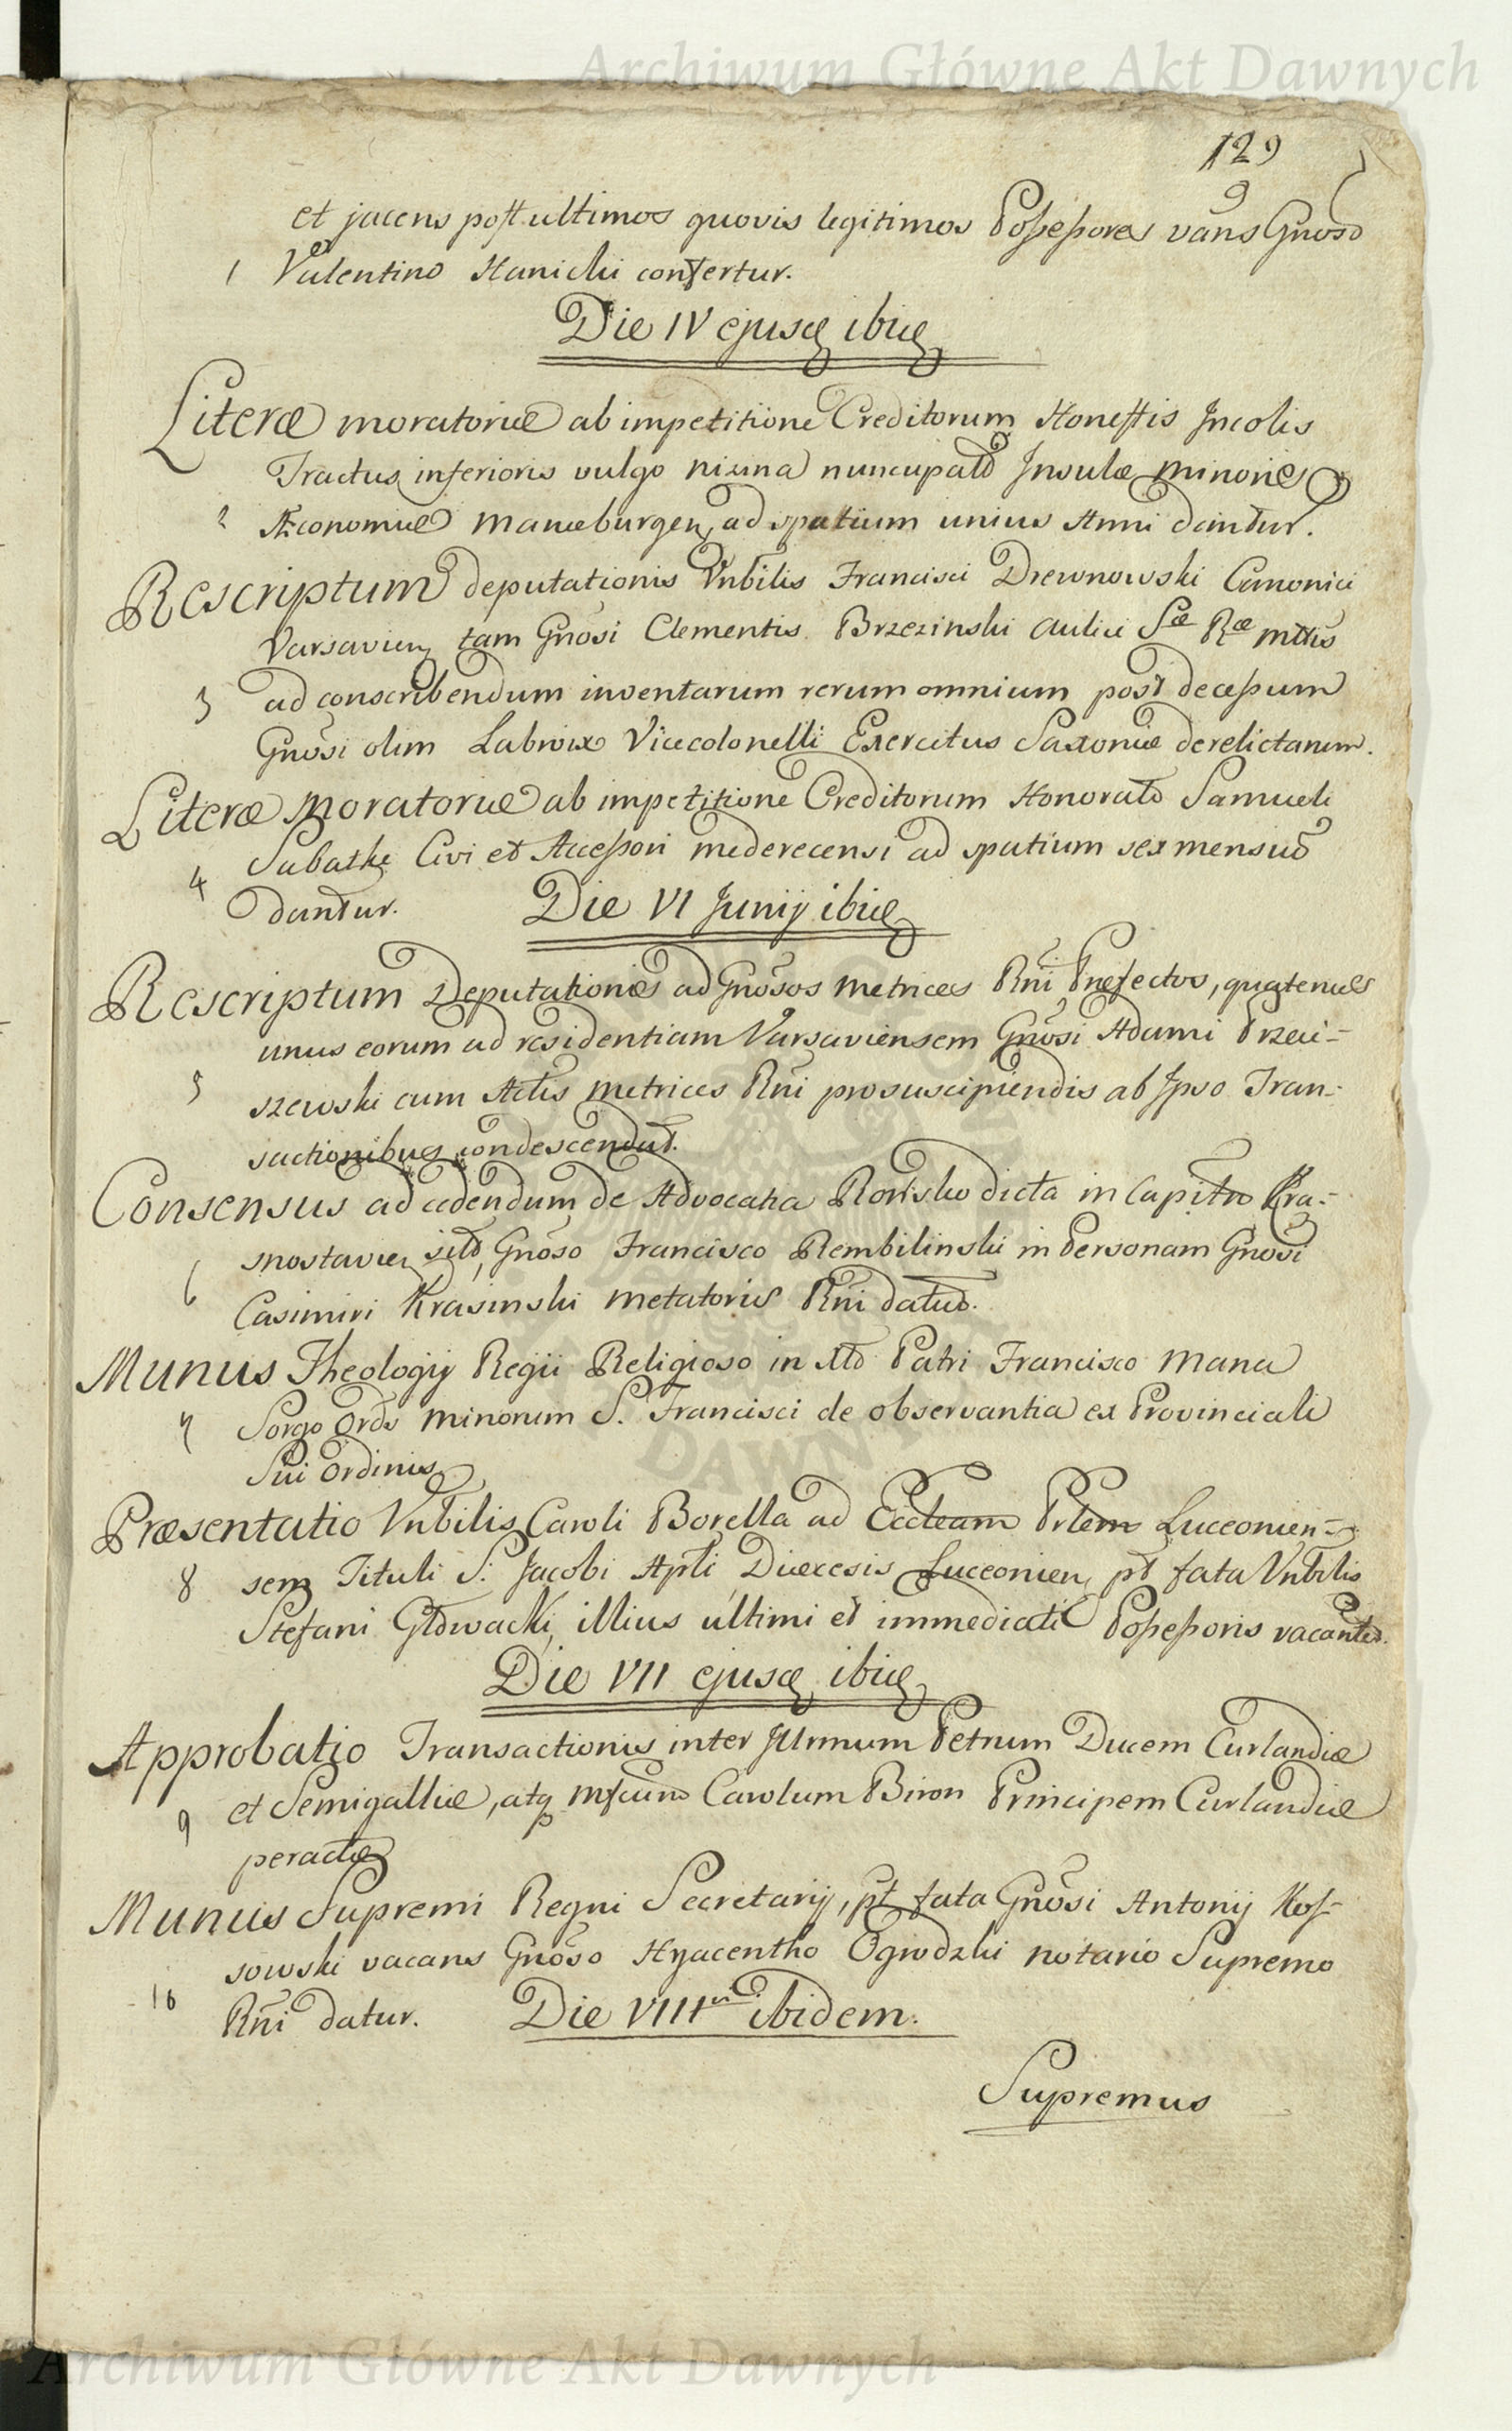 Archiwum Główne Akt Dawnych
129
9
et jacens post ultimos quovis legitimos Possessores vans Gnoso
1 Valentino Hanicki confertur.
Die IV ejusd ibid
Literæ moratoriæ ab impetitione Creditorum Honestis Incolis
Tractus inferioris vulgo nizina nuncupato Insulæ minoris
2 Æconomiæ Marieburgen, ad spatium unius Anni dantur.
Rescriptum deputationis Vnbilis Francisci Drewnowski Canonici
Varsavien, tam Gnosi Clementis Brzezinski Aulici Sæ Ræ Mttis
3 ad conscribendum inventarum rerum omnium post decessum
Gnosi olim Labroix Vicecolonelli Exercitus Saxoniæ derelictarum.
Literæ Moratoriæ ab impetitione Creditorum Honorato Samueli
4 Civi et Accessori ad spatium sex mensium
dantur. Die VI Junij ibid
Rescriptum Deputationis ad Gnosos Metrices Rni Præfectos, quatenus
unus eorum ad residentiam Varsaviensem Gnosi Adami Przeci-
5 szewski cum Actis Metrices Rni pro suscipiendis ab Ipso Tran-
sactionibus condescendat.
Consensus ad cedendum de Advocatia dicta in Capitto Kra-
snostavien, Gnoso Francisco Rembilinski in Personam Gnosi
6 Casimiri Krasinski metatoris Rni datus.
Munus Theologij Regii Religioso in Xto Patri Francisco Maria
7 Sorgo Ords Minorum S. Francisci de observantia ex Provinciali
Sui Ordinis
Præsentatio Vnbilis Caroli Borella ad Eccleam Prlem Luceonien-
8 sem Tituli S. Jacobi Apli Diæcesis Luceonien, pt fata Vnbilis
Stefani Głowacki, illius ultimi et immediati Possessoris vacantes.
Die VII ejusd ibid
Approbatio Transactionis inter Illrmum Petrum Ducem Curlandiæ
9 et Semigalliæ, atq Carolum Biron Principem Curlandiæ
peractæ
Munus Supremi Regni Secretarij, pt fata Gnosi Antonij Kos-
sowski vacans Gnoso Hyacentho Ogrodzki notario Supremo
10 Rni datur. Die VIII ibidem.
Supremus
Archiwum Główne Akt Dawnych